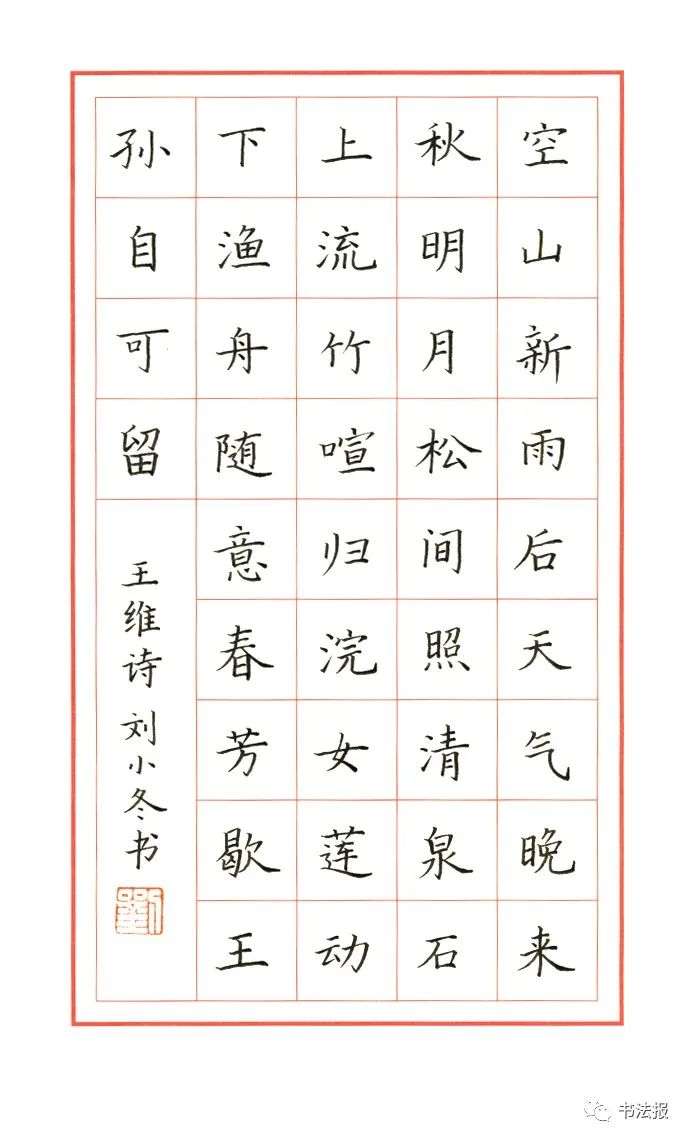 空山新雨后天气晚来
秋明月松间照清泉石
上流竹喧归浣女莲动
下渔舟随意春芳歇王
孙自可留
王维诗 刘小冬书
劉
书法报